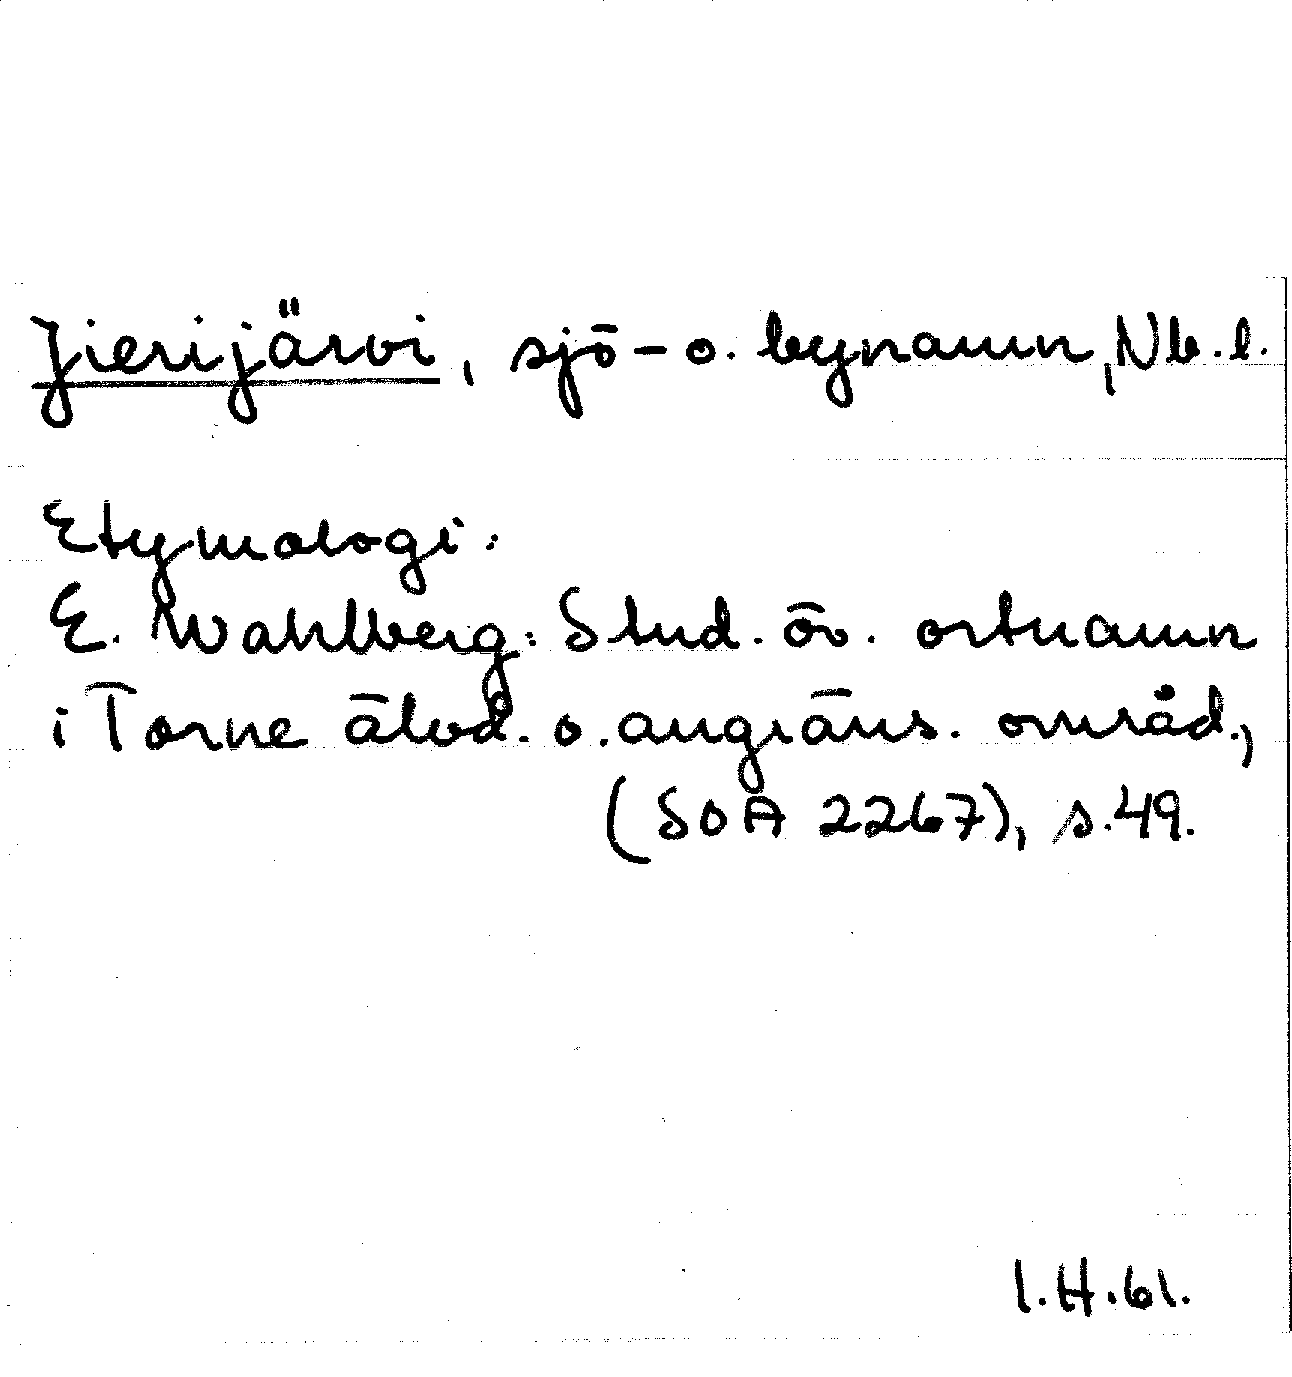 Jierijärvi, sjö- o. bynamn, Nb.l.
Etymologi:
E. Wahlberg: Stud. öv. ortnamn
i Torne älvd. o. angräns. områd.,
(SOA 2267), s.49.
I.H.61.